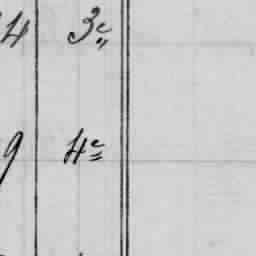 4 3e
9 4e